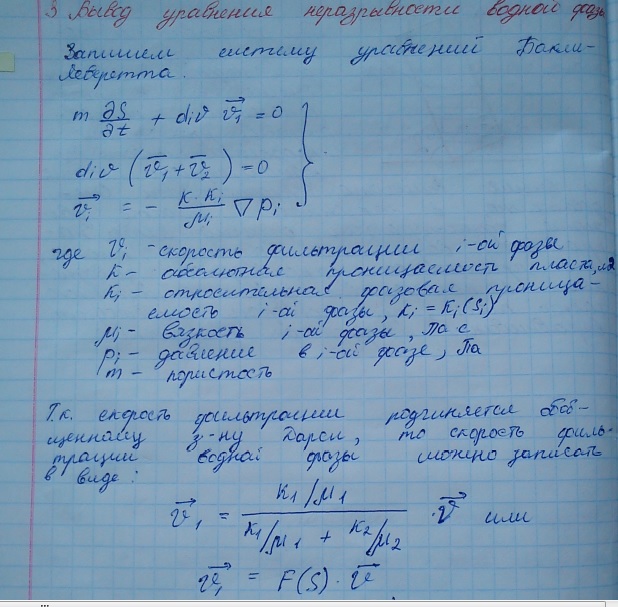 3 Вывод уравнения неразрывности водной фазы
Запишем систему уравнений Бакли-
Леверетта.
m ∂S/∂t + div v⃗₁ = 0
div (v⃗₁ + v⃗₂) = 0
v⃗ᵢ = - K·Kᵢ/μᵢ ∇pᵢ
где vᵢ - скорость фильтрации i-ой фазы
K - абсолютная проницаемость пласта, м2
Kᵢ - относительная фазовая проница-
емость i-ой фазы, Kᵢ = Kᵢ(Sᵢ)
μᵢ - вязкость i-ой фазы, Па с
pᵢ - давление в i-ой фазе, Па
m - пористость
Т.к. скорость фильтрации подчиняется обоб-
щенному з-ну Дарси, то скорость филь-
трации водной фазы можно записать
в виде:
v⃗₁ = (K₁/μ₁)/(K₁/μ₁ + K₂/μ₂) · v⃗ или
v⃗₁ = F(S) · v⃗